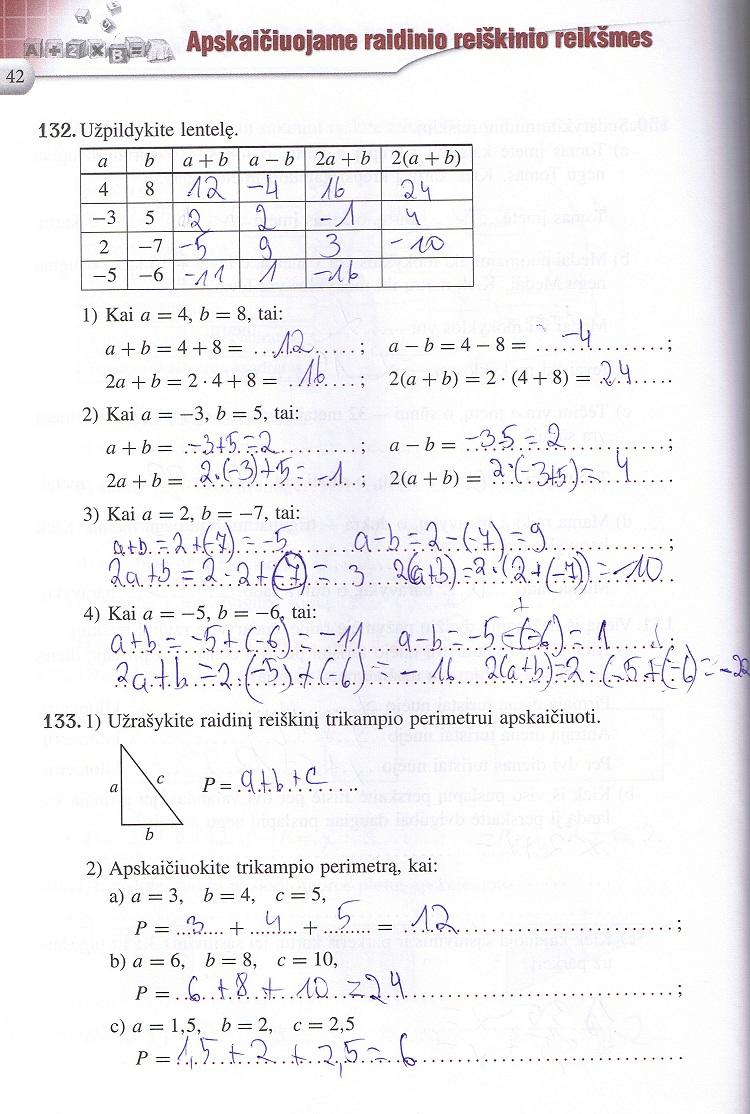 A + Z × B =
Apskaičiuojame raidinio reiškinio reikšmes
42
132. Užpildykite lentelę.
a b a + b a − b 2a + b 2(a + b)
4 8 12 −4 16 24
−3 5 2 2 −1 4
2 −7 −5 9 3 −10
−5 −6 −11 1 −16
1) Kai a = 4, b = 8, tai:
a + b = 4 + 8 = 12 ; a − b = 4 − 8 = −4 ;
2a + b = 2 · 4 + 8 = 16 ; 2(a + b) = 2 · (4 + 8) = 24
2) Kai a = −3, b = 5, tai:
a + b = −3+5=2 ; a − b = −35=2 ;
2a + b = 2·(−3)+5=−1 ; 2(a + b) = 2·(−3+5)= 4
3) Kai a = 2, b = −7, tai:
a+b=2+(−7)=−5 a−b=2−(−7)=9 ;
2a+b=2·2+(−7)= 3 2(a+b)=2·(2+(−7))=−10
4) Kai a = −5, b = −6, tai:
a+b=−5+(−6)=−11 a−b=−5−(−6)=1 ;
2a+b=2·(−5)+(−6)=−16 2(a+b)=2·(−5+(−6)=−22
133. 1) Užrašykite raidinį reiškinį trikampio perimetrui apskaičiuoti.
a c b
P = a+b+c
2) Apskaičiuokite trikampio perimetrą, kai:
a) a = 3, b = 4, c = 5,
P = 3 + 4 + 5 = 12 ;
b) a = 6, b = 8, c = 10,
P = 6 + 8 + 10 = 24 ;
c) a = 1,5, b = 2, c = 2,5
P = 1,5 + 2 + 2,5 = 6